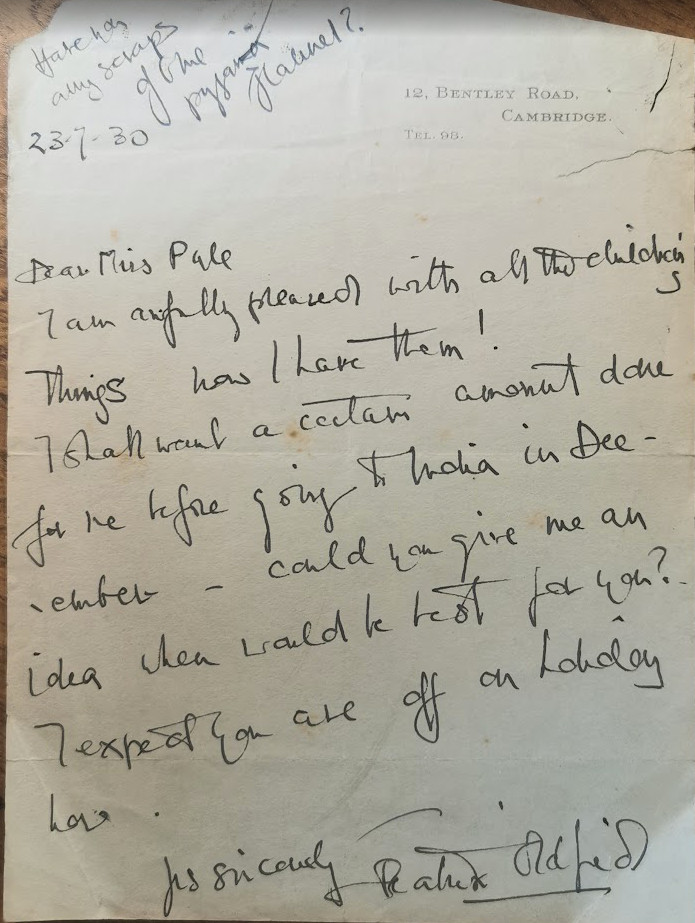 Have you
any scraps
of the
pyjama
flannel?
12, BENTLEY ROAD,
CAMBRIDGE.
TEL. 98.
23-7-30
Dear Miss Pyle
I am awfully pleased with all the children's
Things now I have them!
I shall want a certain amount done
for me before going to India in Dec-
ember - could you give me an
idea when would be best for you?
I expect you are off on holiday
now.
Yrs sincerely Beatrix